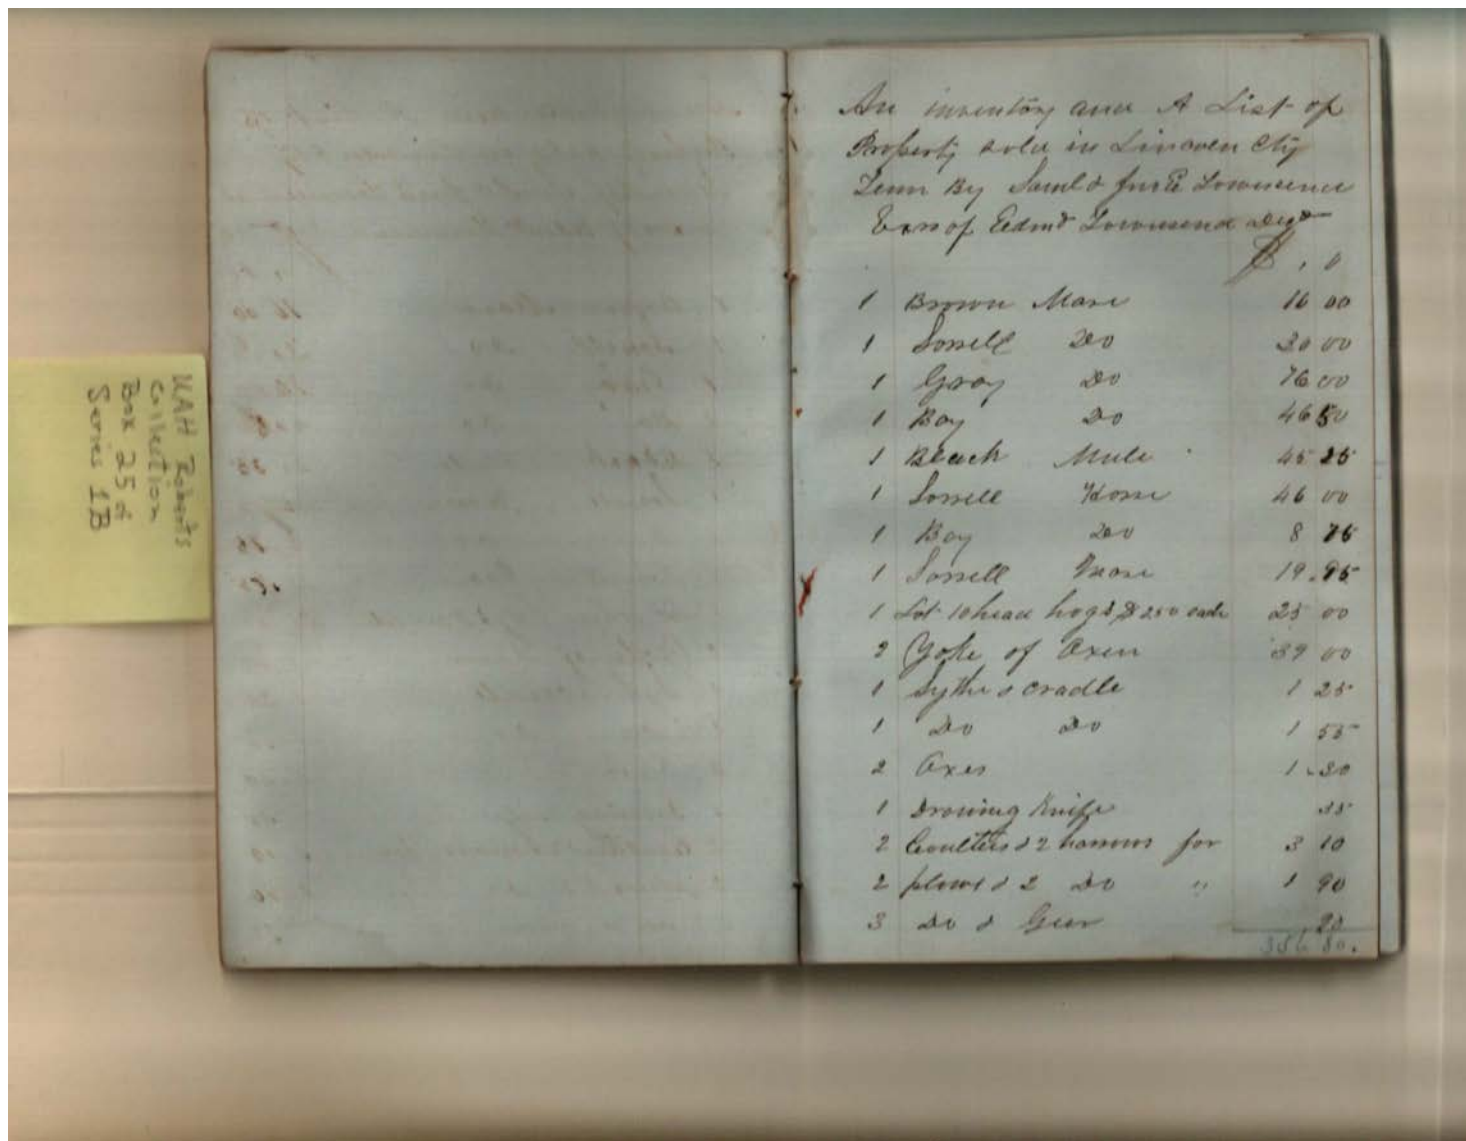 UAH Roberts
Collection
Box 25 of
Series 1B
An inventory and A List of
Property sold in Lincoln Cty
Tenn By Saml & Townsend
Exrs of Edmd Townsend Decd
$
1 Brown Mare 16 00
1 Sorrell Do 30 00
1 Gray Do 76 00
1 Bay Do 46 50
1 Black Mule 45 25
1 Sorrell Horse 46 00
1 Bay Do 8 75
1 Sorrell Mare 19.95
1 Lot 10 head hogs $2 50 each 25 00
2 Yoke of Oxen 39 00
1 Sythe & Cradle 1 25
1 Do Do 1 55
2 Axes 1.30
1 Drawing Knife 35
2 Coulters & 2 harrows for 3 10
2 plows & 2 Do " 1 90
3 Do & Geer 20